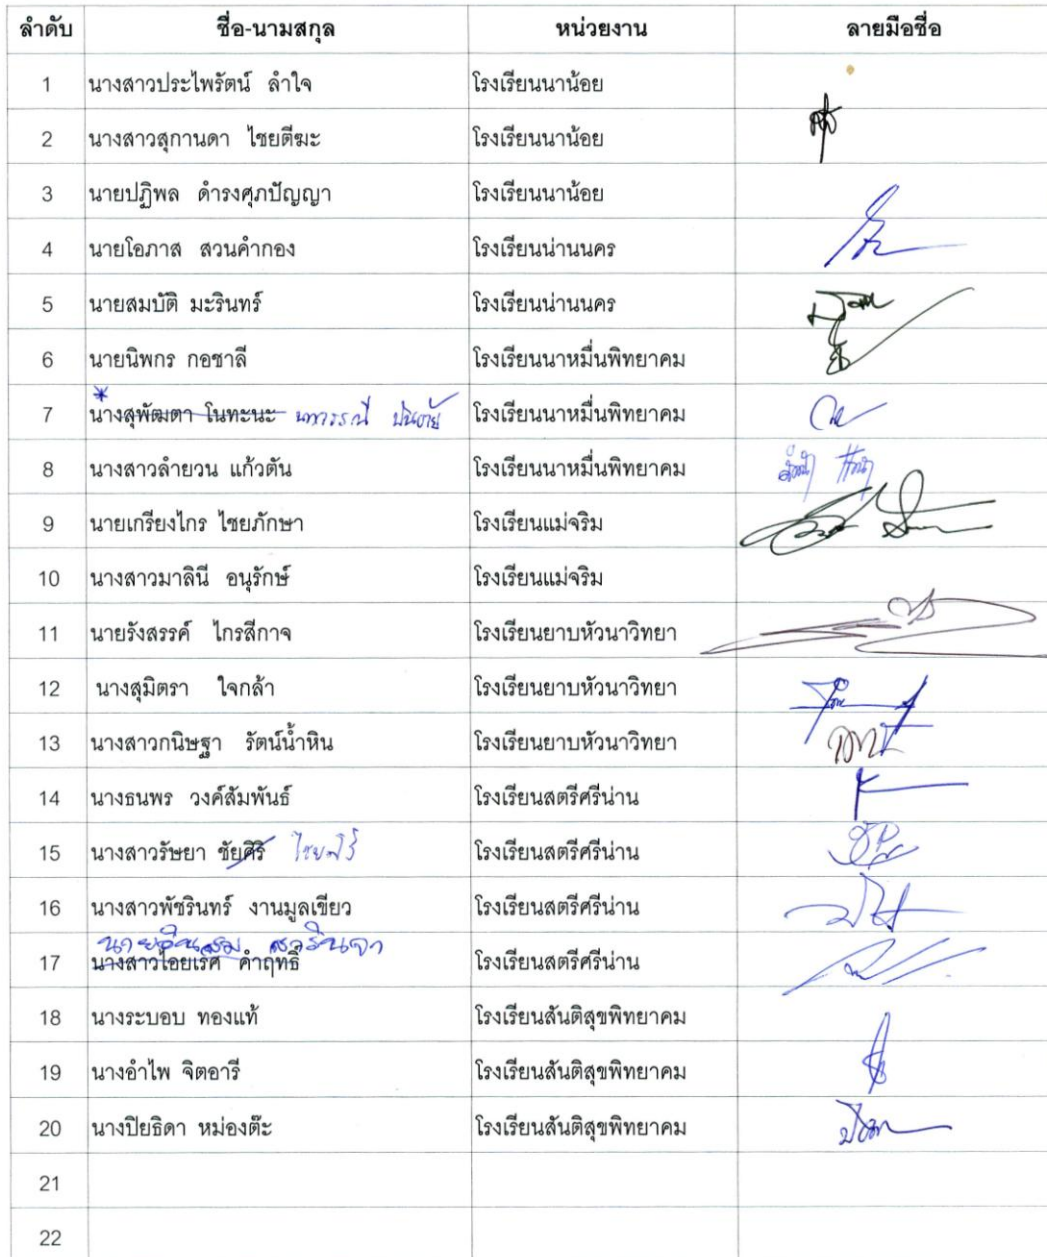 ลำดับ ชื่อ-นามสกุล หน่วยงาน ลายมือชื่อ
1 นางสาวประไพรัตน์ ลำใจ โรงเรียนนาน้อย
2 นางสาวสุกานดา ไชยตีฆะ โรงเรียนนาน้อย
3 นายปฏิพล ดำรงศุภปัญญา โรงเรียนนาน้อย
4 นายโอภาส สวนคำกอง โรงเรียนน่านนคร
5 นายสมบัติ มะรินทร์ โรงเรียนน่านนคร
6 นายนิพกร กอชาลี โรงเรียนนาหมื่นพิทยาคม
7 นางสุพัฒตา โนทะนะ โรงเรียนนาหมื่นพิทยาคม
8 นางสาวลำยวน แก้วตัน โรงเรียนนาหมื่นพิทยาคม
9 นายเกรียงไกร ไชยภักษา โรงเรียนแม่จริม
10 นางสาวมาลินี อนุรักษ์ โรงเรียนแม่จริม
11 นายรังสรรค์ ไกรสีกาจ โรงเรียนยาบหัวนาวิทยา
12 นางสุมิตรา ใจกล้า โรงเรียนยาบหัวนาวิทยา
13 นางสาวกนิษฐา รัตน์น้ำหิน โรงเรียนยาบหัวนาวิทยา
14 นางธนพร วงค์สัมพันธ์ โรงเรียนสตรีศรีน่าน
15 นางสาวรัษยา ชัยศิริ ไชยศิริ โรงเรียนสตรีศรีน่าน
16 นางสาวพัชรินทร์ งานมูลเขียว โรงเรียนสตรีศรีน่าน
17 นางสาวไอยเรศ คำฤทธิ์ โรงเรียนสตรีศรีน่าน
18 นางระบอบ ทองแท้ โรงเรียนสันติสุขพิทยาคม
19 นางอำไพ จิตอารี โรงเรียนสันติสุขพิทยาคม
20 นางปิยธิดา หม่องต๊ะ โรงเรียนสันติสุขพิทยาคม
21
22